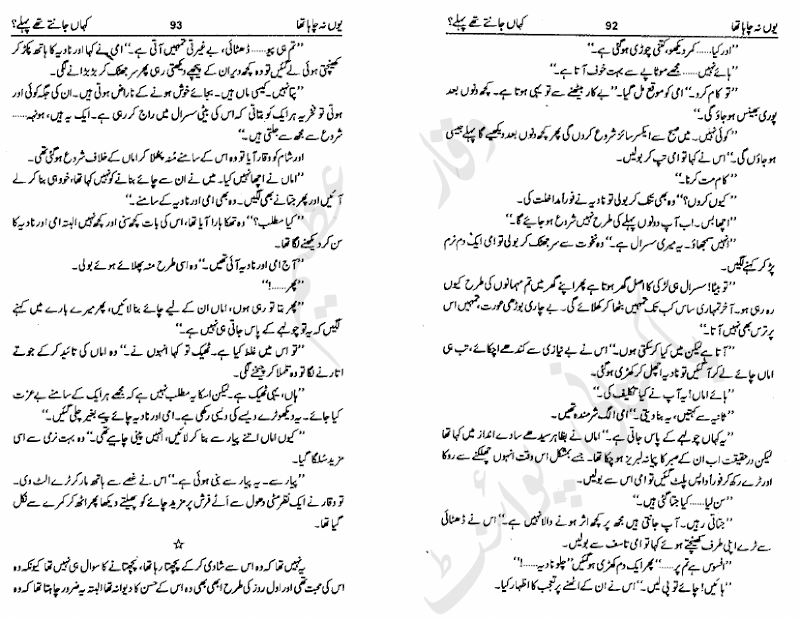 یوں نہ چاہا تھا 92 کہاں جانتے تھے پہلے؟
’’اور کیا...... کمر دیکھو، کتنی چوڑی ہو گئی ہے۔‘‘
’’ہائے نہیں...... مجھے موٹاپے سے بہت خوف آتا ہے۔‘‘
’’تو کام کرو۔‘‘ امی کو موقع مل گیا۔ ’’بے کار بیٹھنے سے تو یہی ہوتا ہے۔ کچھ دنوں بعد
پوری بھینس ہو جاؤ گی۔‘‘
’’کوئی نہیں۔ میں صبح سے ایکسرسائز شروع کردوں گی پھر کچھ دنوں بعد دیکھیے گا پہلے جیسی
ہو جاؤں گی۔‘‘ اس نے کہا تو امی تپ کر بولیں۔
’’کام مت کرنا۔‘‘
’’کیوں کروں؟‘‘ وہ بھی تنک کر بولی تو نادیہ نے فوراً مداخلت کی۔
’’اچھا بس۔ اب آپ دونوں پہلے کی طرح نہیں شروع ہو جائیے گا۔‘‘
’’انہیں سمجھاؤ۔ یہ میری سسرال ہے۔‘‘ وہ نخوت سے سر جھٹک کر بولی تو امی ایک دم نرم
پڑ کر کہنے لگیں۔
’’تو بیٹا! سسرال ہی لڑکی کا اصل گھر ہوتا ہے پھر اپنے گھر میں تم مہمانوں کی طرح کیوں
رہ رہی ہو۔ آخر تمہاری ساس کب تک تمہیں بٹھا کر کھلائے گی۔ بے چاری بوڑھی عورت، تمہیں اس
پر ترس بھی نہیں آتا۔‘‘
’’آتا ہے لیکن میں کیا کر سکتی ہوں۔‘‘ اس نے بے نیازی سے کندھے اچکائے، تب ہی
اماں چائے لے کر آ گئیں تو نادیہ اچھل کر کھڑی ہو گئی۔
’’ہائے اماں! یہ آپ نے کیا تکلیف کی۔‘‘
’’ثانیہ سے کہتیں، یہ بنا دیتی۔‘‘ امی الگ شرمندہ تھیں۔
’’یہ کہاں چولہے کے پاس جاتی ہے۔‘‘ اماں نے بظاہر سیدھے سادے انداز میں کہا تھا
لیکن درحقیقت اب ان کے صبر کا پیمانہ لبریز ہو چکا تھا۔ جسے بمشکل اس وقت انہوں چھلکنے سے روکا
اور ٹرے رکھ کر فوراً واپس پلٹ گئیں تو امی اس سے بولیں۔
’’سن لیا...... کیا جتا گئی ہیں۔‘‘
’’جتاتی رہیں۔ آپ جانتی ہیں مجھ پر کچھ اثر ہونے والا نہیں ہے۔‘‘ اس نے ڈھٹائی
سے ٹرے اپنی طرف کھینچتے ہوئے کہا تو امی تاسف سے بولیں۔
’’افسوس ہے تم پر......‘‘ پھر ایک دم کھڑی ہو گئیں ’’چلو نادیہ......!‘‘
’’ہائیں! چائے تو پی لیں۔‘‘ اس نے ان کے اٹھنے پر تعجب کا اظہار کیا۔
یوں نہ چاہا تھا 93 کہاں جانتے تھے پہلے؟
’’تم ہی پیو...... ڈھٹائی، بے غیرتی تمہیں آتی ہے۔‘‘ امی نے کہا اور نادیہ کا ہاتھ پکڑ کر
کھینچتی ہوئی لے گئیں تو وہ کچھ دیر ان کے پیچھے دیکھتی رہی پھر سر جھٹک کر بڑبڑانے لگی۔
’’پتا نہیں۔ کیسی ماں ہیں۔ بجائے خوش ہونے کے ناراض ہوتی ہیں۔ ان کی جگہ کوئی اور
ہوتی تو فخر یہ ہر ایک کو بتاتی کہ اس کی بیٹی سسرال میں راج کر رہی ہے۔ ایک یہ ہیں، ہونہہ......
شروع سے مجھ سے جلتی ہیں۔‘‘
اور شام کو وقار آیا تو وہ اس کے سامنے منہ پھلا کر اماں کے خلاف شروع ہو گئی تھی۔
’’اماں نے اچھا نہیں کیا۔ میں نے ان سے چائے بنانے کو نہیں کہا تھا، خود ہی بنا کر لے
آئیں اور پھر جتانے بھی لگیں۔ وہ بھی امی اور نادیہ کے سامنے۔‘‘
’’کیا مطلب؟‘‘ وہ تھکا ہارا آیا تھا، اس کی بات کچھ سنی اور کچھ نہیں البتہ امی اور نادیہ کا
سن کر دیکھنے لگا تھا۔
’’آج امی اور نادیہ آئی تھیں۔‘‘ وہ اسی طرح منہ پھلائے ہوئے بولی۔
’’پھر......!‘‘
’’پھر بتا تو رہی ہوں، اماں ان کے لیے چائے بنا لائیں، پھر میرے بارے میں کہنے
لگیں کہ یہ تو چولہے کے پاس جاتی ہی نہیں ہے۔‘‘
’’تو اس میں غلط کیا ہے۔ ٹھیک تو کہا انہوں نے۔‘‘ وہ اماں کی تائید کر کے جوتے
اتارنے لگا تو وہ تلملا کر چیخنے لگی۔
’’ہاں، یہی ٹھیک ہے۔ لیکن اس کا یہ مطلب نہیں ہے کہ مجھے ہر ایک کے سامنے بے عزت
کیا جائے۔ یہ دیکھو ٹرے ویسے کی ویسی رکھی ہے۔ امی اور نادیہ چائے پیے بغیر چلی گئیں۔‘‘
’’کیوں اماں اتنے پیار سے بنا کر لائیں، انہیں پینی چاہیے تھی۔‘‘ وہ بہت نرمی سے اسی
مزید سُلگا گیا۔
’’پیار سے۔ یہ پیار سے بنی ہوئی ہے۔‘‘ اس نے غصے سے ہاتھ مار کر ٹرے الٹ دی۔
تو وقار نے ایک نظر مٹی دھول سے اَٹے فرش پر مزید چائے کو پھیلتے دیکھا پھر اٹھ کر کمرے سے نکل
گیا تھا۔
☆
یہ نہیں تھا کہ وہ اس سے شادی کر کے پچھتا رہا تھا، پچھتانے کا سوال ہی نہیں تھا کیونکہ وہ
اس کی محبت تھی اور اول روز کی طرح ابھی بھی وہ اس کے حسن کا دیوانہ تھا البتہ یہ ضرور چاہتا تھا کہ وہ